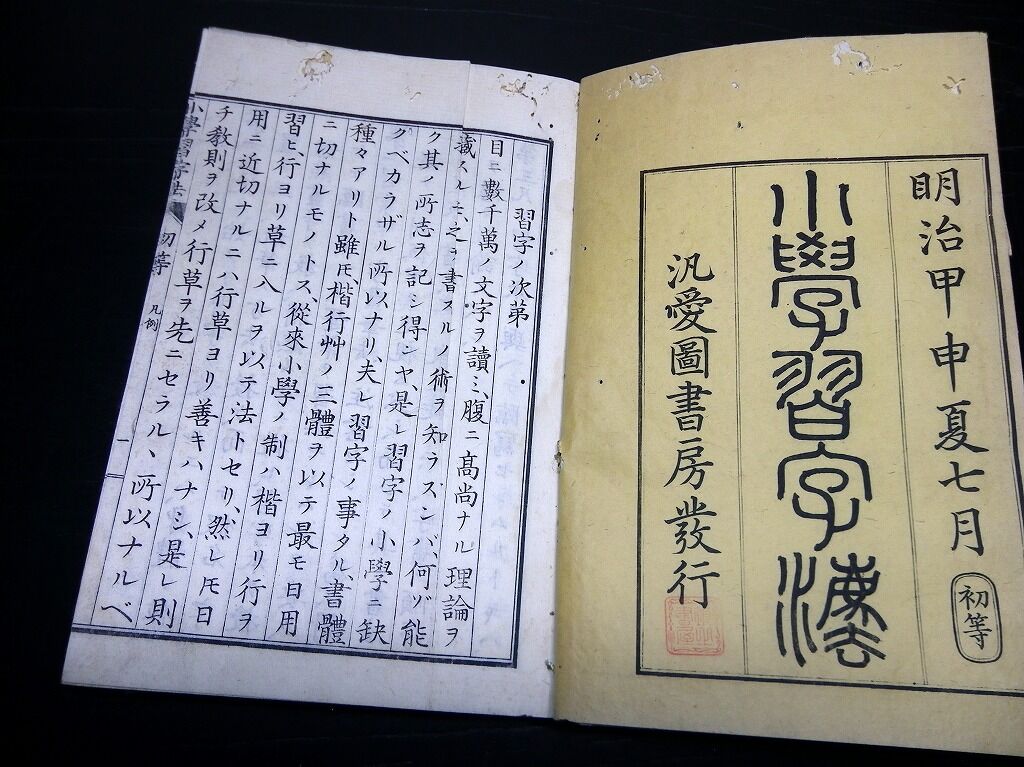 明治甲申夏七月
初等
小學習字灋
汎愛圖書房發行
習字ノ次第
目ニ數千萬ノ文字ヲ讀ミ、腹ニ高尚ナル理論ヲ
藏スルモ、之ヲ書スルノ術ヲ知ラズンバ、何ゾ能
ク其ノ所志ヲ記シ得ンヤ、是レ習字ノ小學ニ缺
クベカラザル所以ナリ、夫レ習字ノ事タル、書體
種々アリト雖モ、楷行艸ノ三體ヲ以テ最モ日用
ニ切ナルモノトス、從來小學ノ制ハ楷ヨリ行ヲ
習ヒ、行ヨリ草ニ入ルヲ以テ法トセリ、然レモ日
用ニ近切ナルニハ行草ヨリ善キハナシ、是レ則
チ教則ヲ改メ行草ヲ先ニセラルヽ所以ナルベ
小學習字法 初等 凡例 一